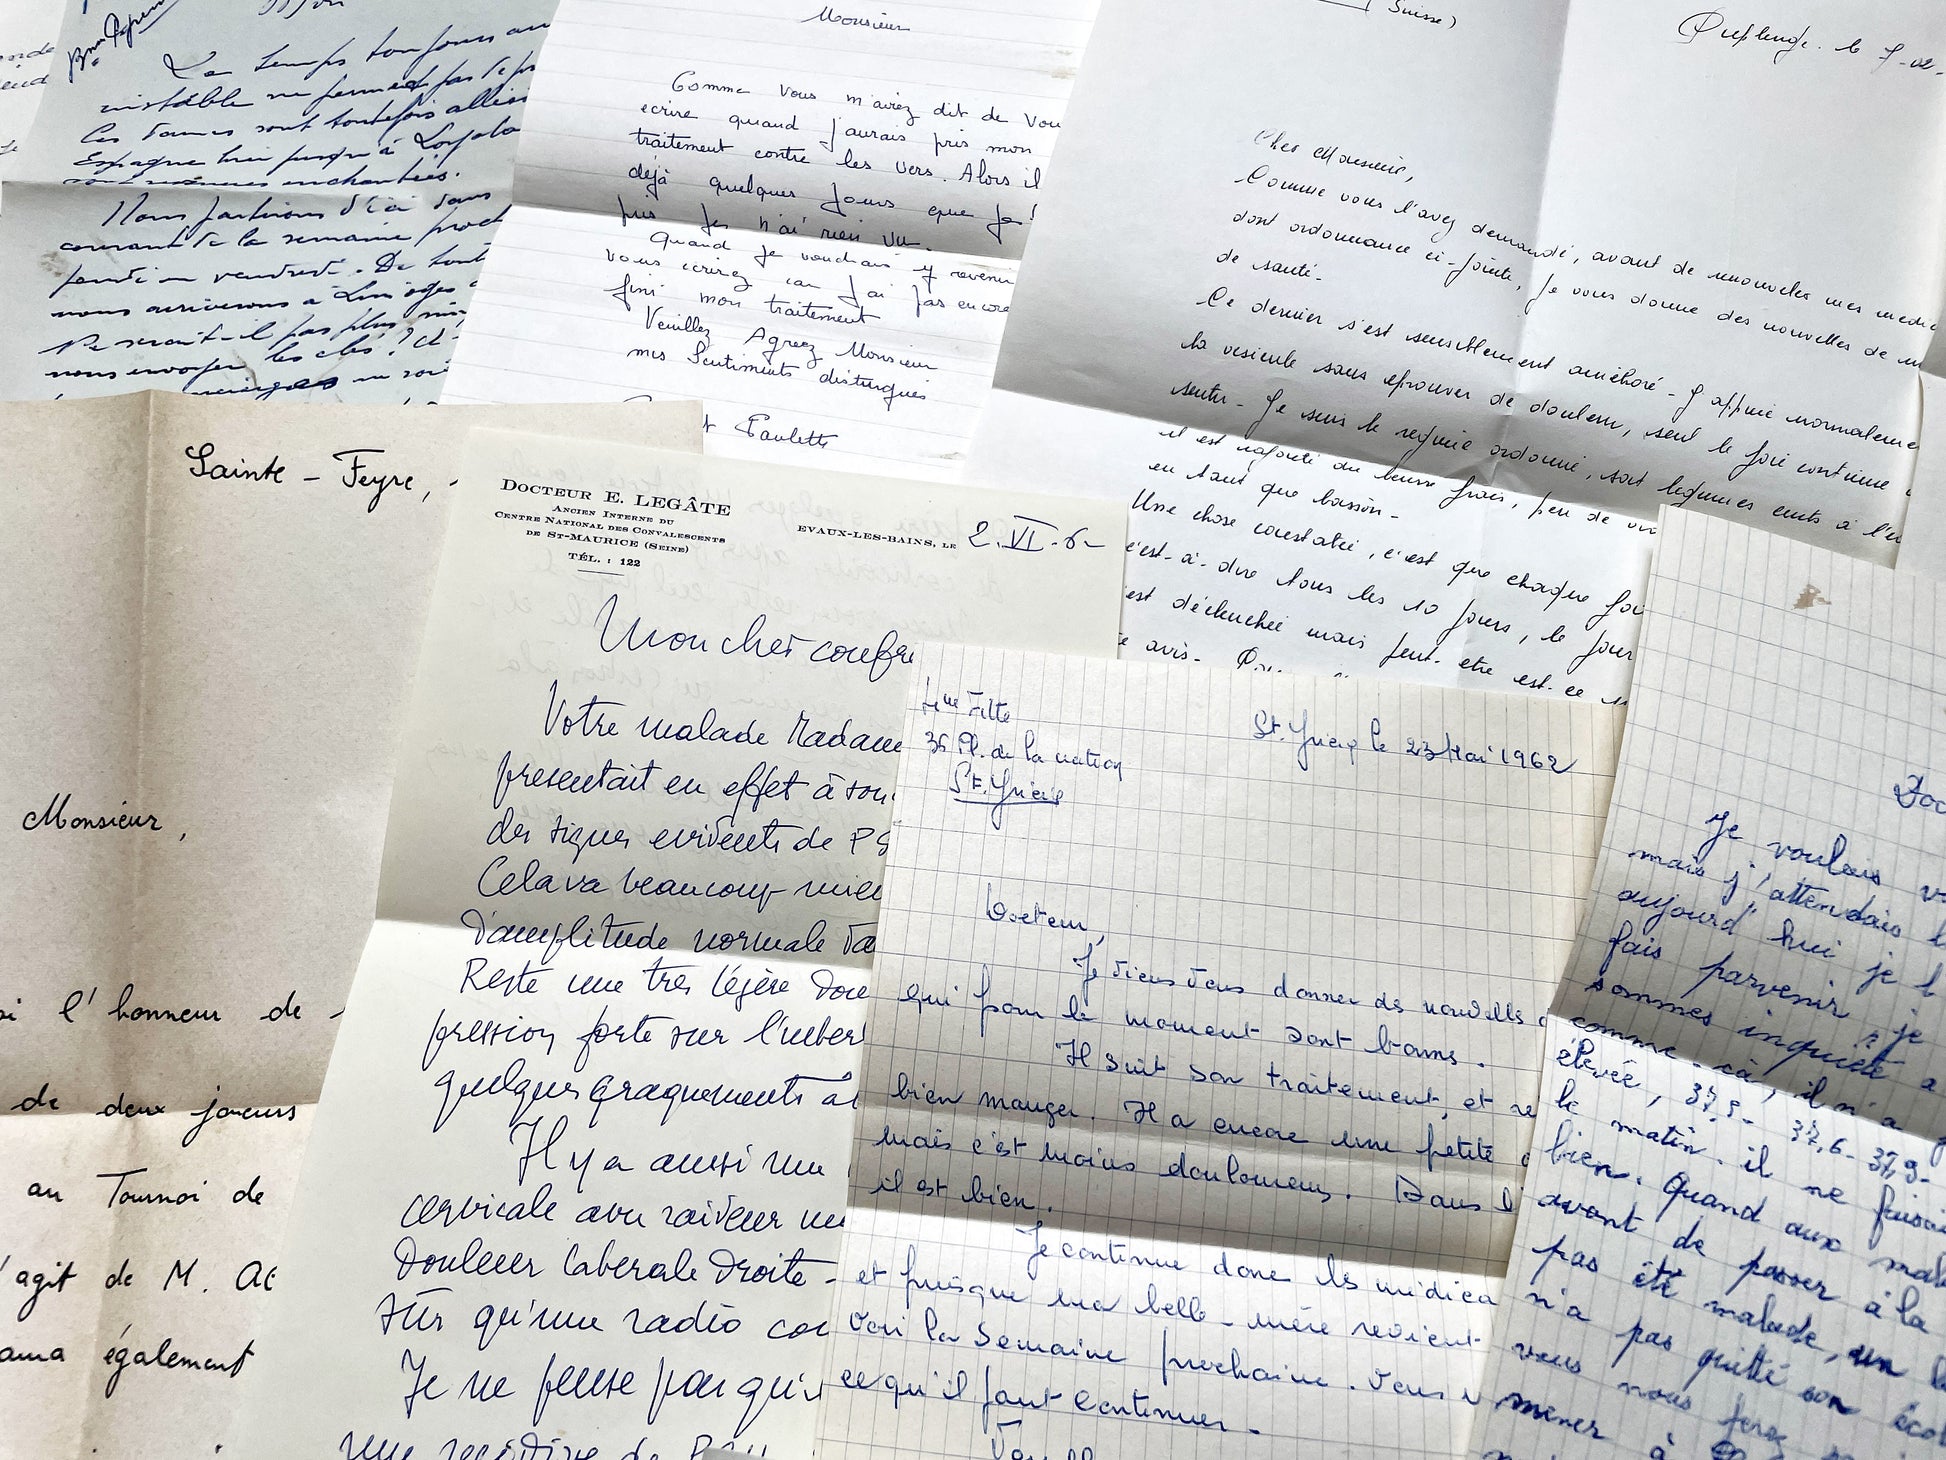 Le temps toujours au
instable ne permet pas de pr
Ces dames sont toutefois allées
Espagne hier jusqu'à Loyola
sont revenues enchantées.
Nous partirons d'ici dans
courant de la semaine proch
jeudi ou vendredi. De tout
nous arriverons à Limoges
Ne serait-il pas plus
nous envoyer les clés ? et
Monsieur
Comme vous m'aviez dit de vou
ecrire quand j'aurais pris mon
traitement contre les vers. Alors il
déjà quelques jours que je l
pris je n'ai rien vu.
Quand je voudrais y revenir
vous ecrirez car j'ai pas encore
fini mon traitement
Veuillez Agreez Monsieur
mes Sentiments distingués
Paulette
(Suisse)
le 7-02-
Cher Monsieur,
Comme vous l'avez demandé, avant de renouveler mes médic
dont ordonnance ci-jointe, je vous donne des nouvelles de m
de santé-
Ce dernier s'est sensiblement amélioré - J'appuie normaleme
la vesicule sans éprouver de douleur, seul le foie continue
sentir - Je suis le régime ordonné, soit legumes cuits à l'e
il est rajouté du beurre frais, peu de vi
en tant que boisson -
Une chose constatée, c'est que chaque foi
c'est-à-dire tous les 10 jours, le jour
est déclenchée mais peut-etre est-ce
avis-
Sainte - Feyre,
Monsieur,
i l'honneur de
de deux joueurs
au Tournoi de
'agit de M.
ama également
DOCTEUR E. LEGÂTE
ANCIEN INTERNE DU
CENTRE NATIONAL DES CONVALESCENTS
DE ST-MAURICE (SEINE)
TÉL. : 122
EVAUX-LES-BAINS, LE 2.VI.6-
Mon cher confre
Votre malade Madame
presentait en effet à son
des signes evidents de PS
Cela va beaucoup mieu
d'amplitude normale da
Reste une très légère dou
pression forte sur l'
quelques craquements à
Il y a aussi une
cervicale avec raideur
douleur laterale droite -
sûr qu'une radio
Je ne pense pas qu'i
une recidive de
Mme Fitte
36 Pl. de la nation
St. Yrieix
St. Yrieix le 23 Mai 1962
Docteur,
Je viens vous donner des nouvelles
qui pour le moment sont bonnes.
Il suit son traitement, et
bien manger. Il a encore une petite
mais c'est moins douloureux. Dans l'
il est bien.
Je continue donc les médica
et puisque ma belle-mère revient
voir la semaine prochaine. Vous
ce qu'il faut continuer -
Doc
Je voulais v
mais j'attendais l
aujourd'hui je
fais parvenir, je
sommes inquiets
comme ça, il n'a
élevée, 37,5 - 37,6 - 37,9 -
le matin. il ne faisai
bien. Quand aux mala
avant de passer à la
pas été malade, un
n'a pas quitté son écol
vous nous ferez
miner à